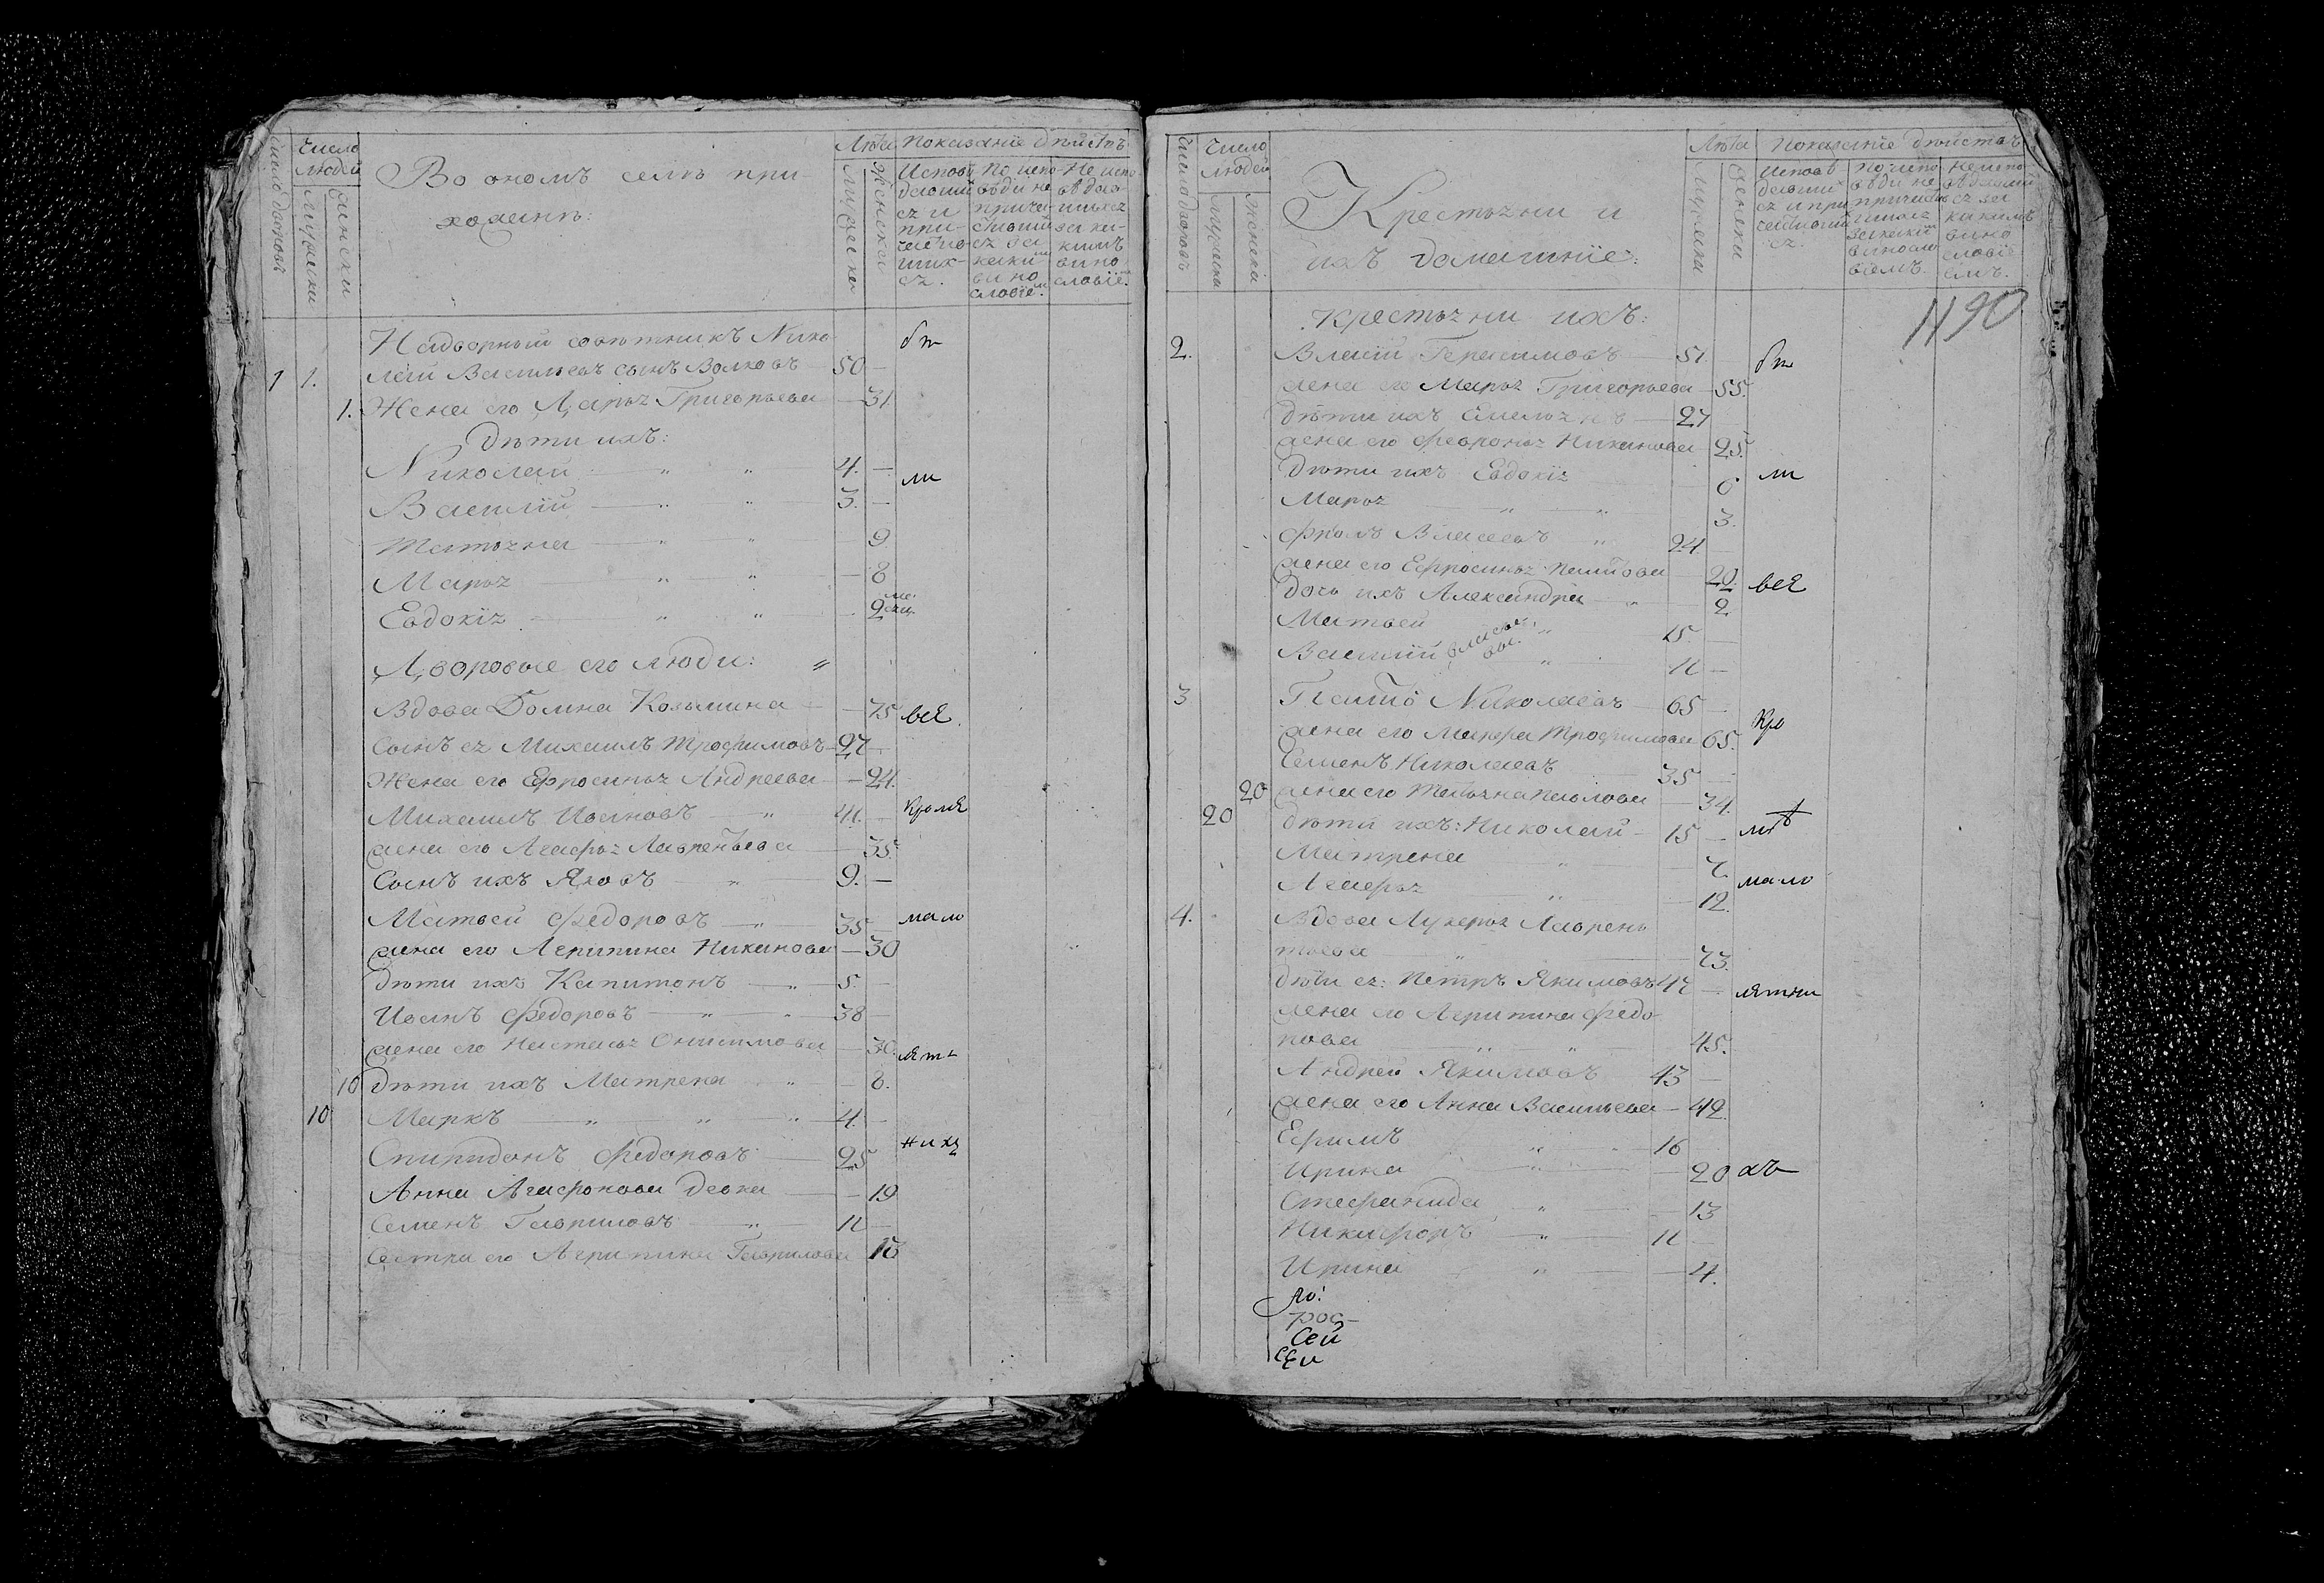 Число дворовъ
Число людей
Мужеска
Женска
Во ономъ селѣ при-
хожанѣ:
Лѣта
Мужеска
Женска
Показанїе дѣйствъ
Исповѣ
давши
ся и
при-
частив
ших-
ся.
По испо
вѣди не
прича-
ставши
ся за
каки
вино
словїе.
Не испо
вѣдав-
шихся
за ка-
кимъ
вино
словїе.
Надворный совѣтникъ Нико
1 1. лай Васильевъ сынъ Волковъ 50 —
1. Жена его Дарья Григорьева — 31.
Дѣти ихъ:
Николай 4. —
Василїй 3. —
Татьяна — 9
Марья — 8
Евдокїя — 2
Дворовые его люди:
Вдова Домна Козьмина — 75
Сынъ ея Михаилъ Трофимовъ 27 —
Жена его Ефросинья Андреева — 24.
Михаилъ Ивановъ 41. —
жена его Агафья Лаврентьева 35.
Сынъ ихъ Яковъ 9. —
Матвей Федоровъ 35 —
жена его Агрипина Никанова — 30
Дѣти ихъ Капитонъ 5. —
Иванъ Федоровъ 38 —
жена его Настасья Онисимова — 30.
10 Дѣти ихъ Матрена — 8.
10 Маркъ 4. —
Спиридонъ Федоровъ 25
Анна Агафонова девка — 19
Семенъ Гавриловъ 11 —
Сестра его Агрипина Гаврилова 18
бы
ли
всѣ
кромѣ
мало
лѣт-
нихъ
Число дворовъ
Число людей
Мужеска
Женска
Крестьяни и
ихъ домашнїе:
Лѣта
Мужеска
Женска
Показанїе дѣйствъ
Исповѣ
давши
ся и при
частивши
ся.
По испо
вѣди не
причаств
шихся
за каким
винослов
віемъ.
Не испо
вѣдавши
ся за
какимъ
вино
словїе
мъ.
1190
Крестьяни ихъ:
2. Власїй Герасимовъ 51.
жена его Марья Григорьева — 55.
Дѣти ихъ Емельянъ 27
жена его Февронья Никанова 25.
Дѣти ихъ Евдокїя 6
Марья 3.
Фролъ Власовъ 24 —
жена его Ефросинья 20.
Дочь ихъ Александра 2
Матвей 15 —
Василїй 11 —
3 Николаевъ 65 —
жена его Мавра Трофимова 65.
Семенъ Николаевъ 35 —
20 жена его Татьяна Павлова — 34.
20 Дѣти ихъ: Николай 15 —
Матрена 7
Агафья 12.
4. Вдова Лукерья Лаврень
тьева 73.
Дѣти ея: Петръ Якимовъ 47 —
жена его Агрипина Федо
рова 45.
Андрей Якимовъ 43 —
жена его Анна Васильева — 42.
Ефимъ 16
Ирина — 20
Стефанида — 13
Никифоръ 11 —
Ирина — 4.
бы
ли
всѣ
Кро
мѣ
мало
лѣтни
хъ
рос-
Сей